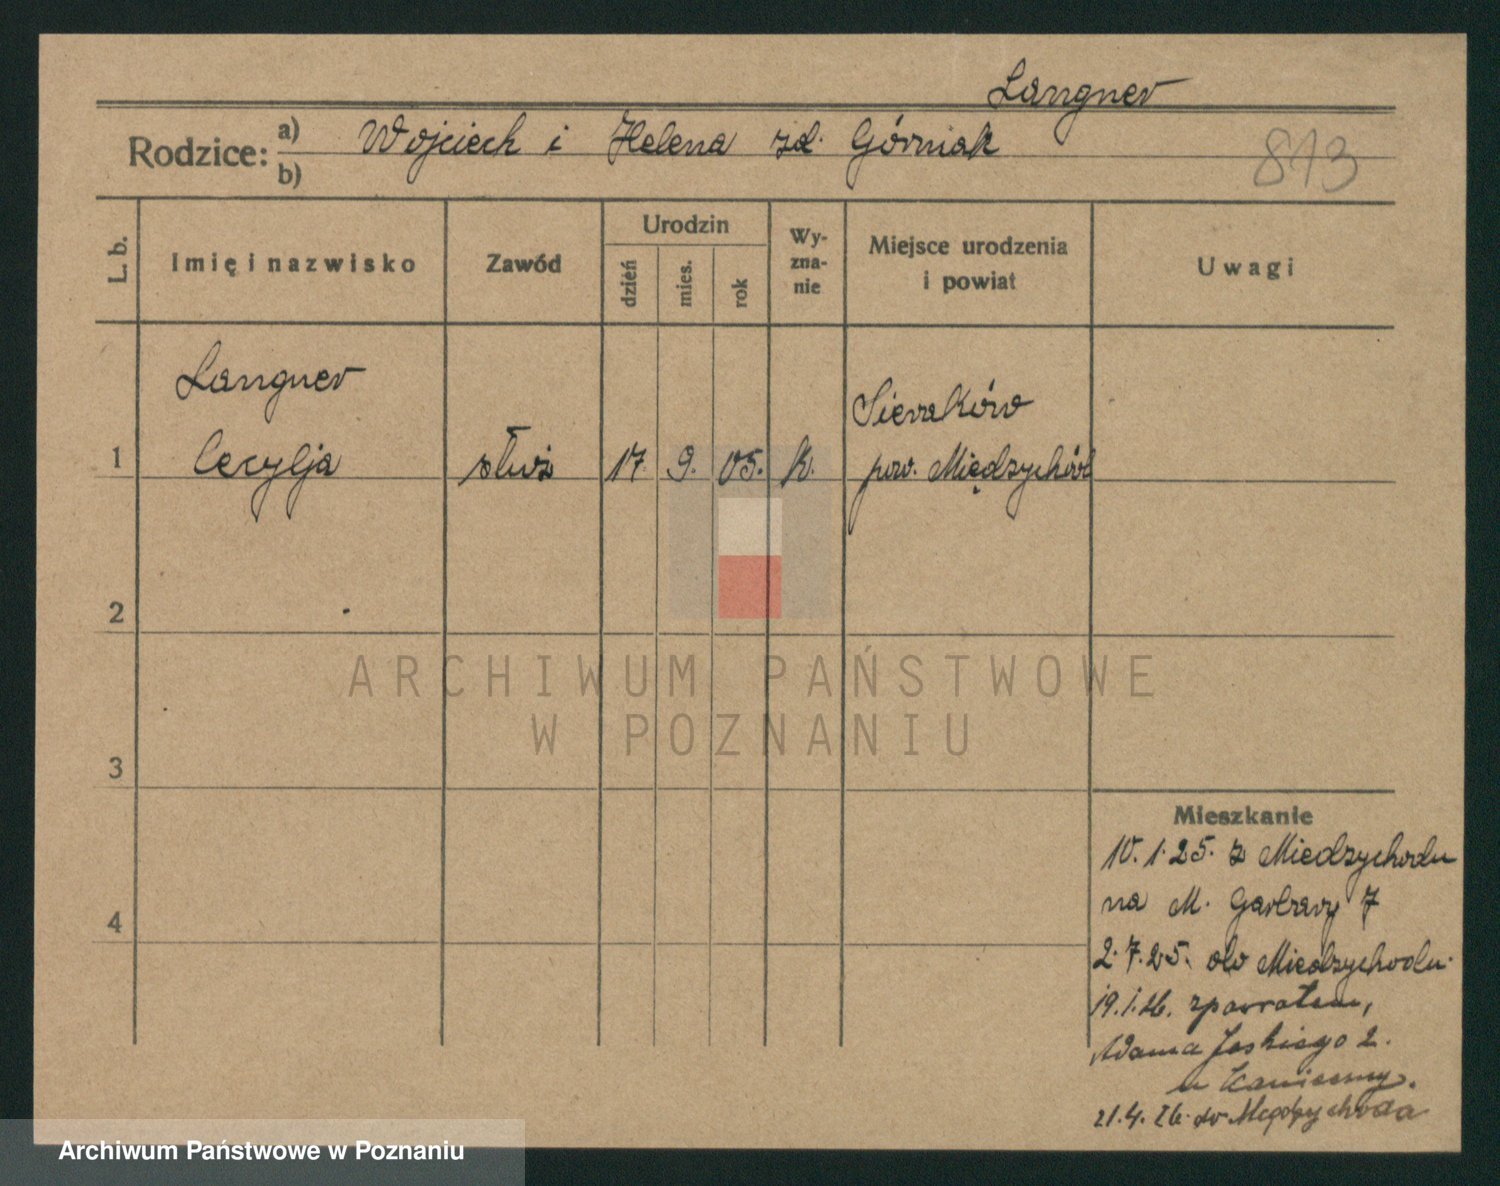 Langner
Rodzice: a) Wojciech i Helena zd. Górniak
b)
813
L. b.
Imię i nazwisko
Zawód
Urodzin
dzień
mies.
rok
Wy-
zna-
nie
Miejsce urodzenia
i powiat
Uwagi
Langner
Sieraków
1 Cecylja służ 17. 9. 05. k. pow. Międzychód
2
3
4
Mieszkanie
10.1.25. z Miedzychodu
na M. Garbary 7
2.7.25. do Miedzychodu.
19.1.26. zpowrotem,
Adama Jaskiego 2.
u
21.4.26. do Międzychoda
ARCHIWUM PAŃSTWOWE
W POZNANIU
Archiwum Państwowe w Poznaniu